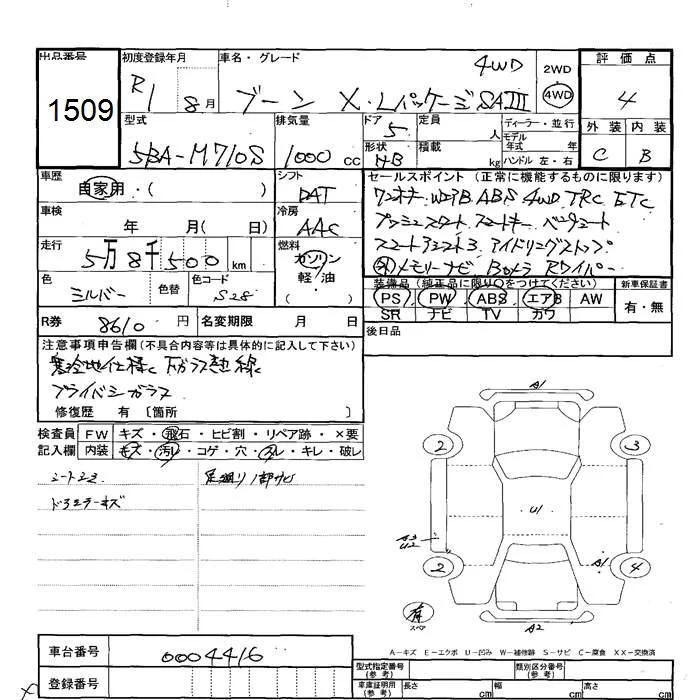 出品番号
1509
初度登録年月
R1 8月
車名・グレード
4WD
ブーン X・Lパッケージ SAⅢ
2WD
4WD
評価点
4
外装 内装
C B
型式
5BA-M710S
排気量
1000 cc
ドア
5
形状
HB
定員
人
積載
kg
ディーラー・並行
モデル
年式 年
ハンドル 左・右
車歴
自家用・( )
車検
年 月( 日)
走行
5万8千500 km
色
シルバー
色替
色コード
S28
シフト
DAT
冷房
AAC
燃料
ガソリン
軽・油
( )
セールスポイント (正常に機能するものに限ります)
ワンオナ WエアB ABS 4WD TRC ETC
プッシュスタート スマートキー ベンチシート
スマートアシスト3 アイドリングストップ
外 メモリーナビ Bカメラ Rワイパー
装備品(純正品に限り○をつけてください)
PS PW ABS エアB AW
SR ナビ TV カワ
新車保証書
有・無
後日品
R券 8610 円
名変期限 月 日
注意事項申告欄(不具合内容等は具体的に記入して下さい)
寒冷地仕様 Fガラス熱線
プライバシーガラス
修復歴 有〔箇所 〕
検査員
記入欄
FW キズ・飛石・ヒビ割・リペア跡・×要
内装 キズ・汚れ・コゲ・穴・スレ・キレ・破レ
シートシミ
ドアミラーキズ
足廻り1部サビ
A1
2
3
U1
A3
U2
A1
2
4
有
スペア
A2
A-キズ E-エクボ U-凹み W-補修跡 S-サビ C-腐食 XX-交換済
車台番号
0004416
登録番号
型式指定番号
(参考)
類別区分番号
(参考)
車庫証明用
(参考)
長さ cm
幅 cm
高さ cm